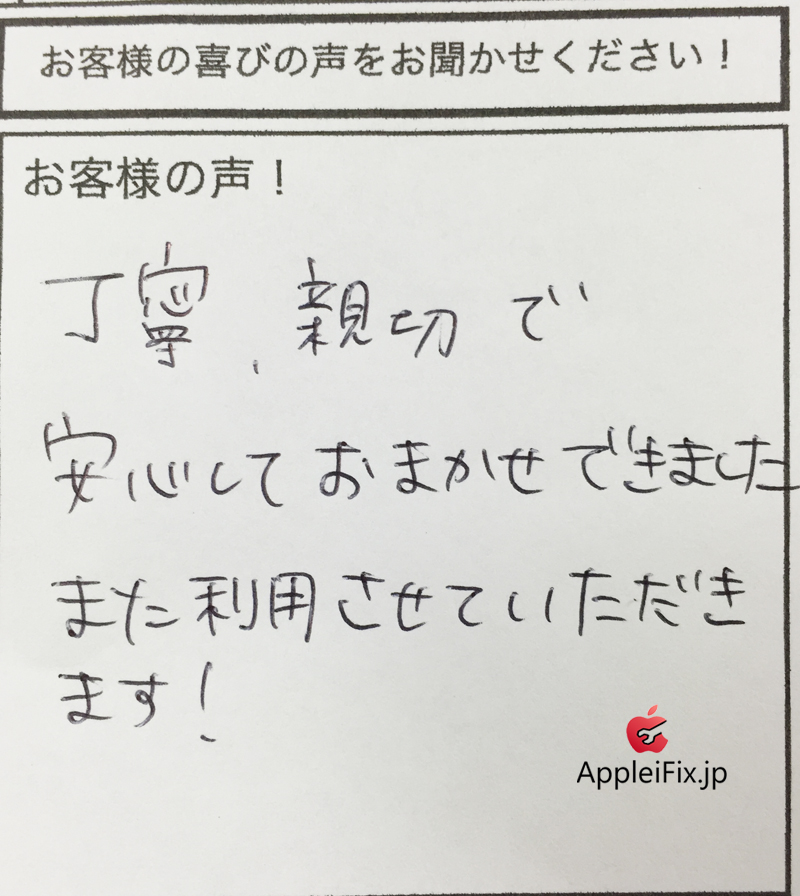 お客様の喜びの声をお聞かせください！
お客様の声！
丁寧、親切で
安心しておまかせできました
また利用させていただき
ます！
AppleiFix.jp